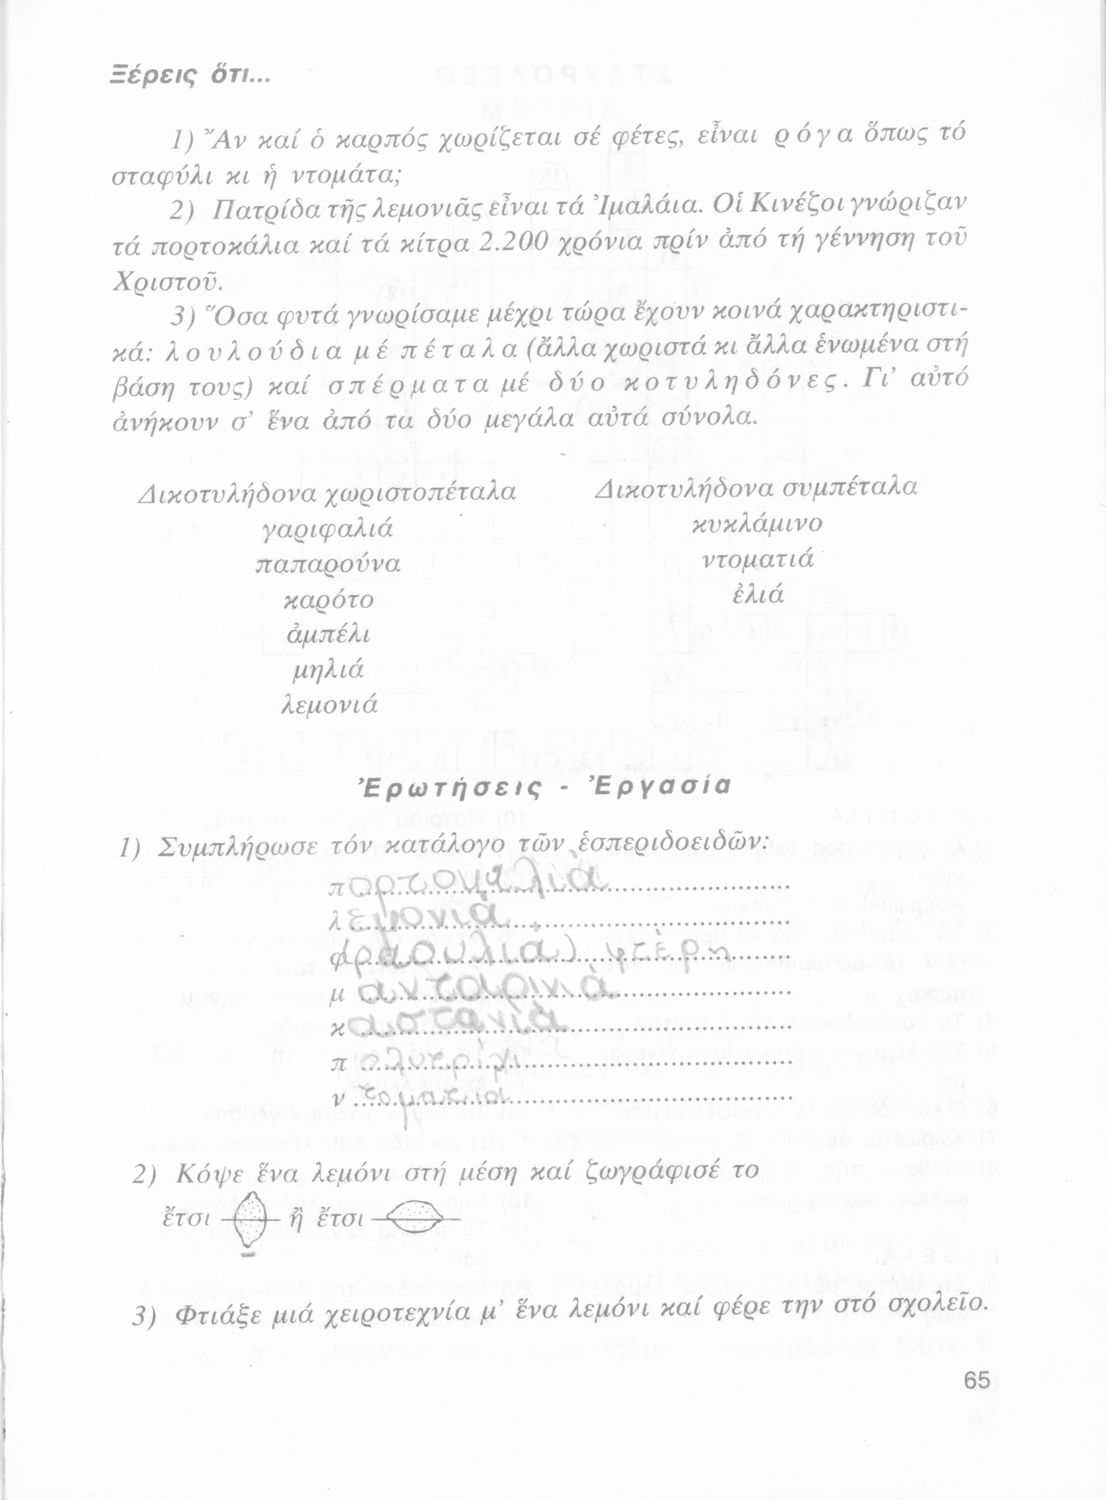 Ξέρεις ὅτι...
1) Ἄν καί ὁ καρπός χωρίζεται σέ φέτες, εἶναι ρόγα ὅπως τό
σταφύλι κι ἡ ντομάτα;
2) Πατρίδα τῆς λεμονιᾶς εἶναι τά Ἰμαλάια. Οἱ Κινέζοι γνώριζαν
τά πορτοκάλια καί τά κίτρα 2.200 χρόνια πρίν ἀπό τή γέννηση τοῦ
Χριστοῦ.
3) Ὅσα φυτά γνωρίσαμε μέχρι τώρα ἔχουν κοινά χαρακτηριστι-
κά: λουλούδια μέ πέταλα (ἄλλα χωριστά κι ἄλλα ἑνωμένα στή
βάση τους) καί σπέρματα μέ δύο κοτυληδόνες. Γι' αὐτό
ἀνήκουν σ' ἕνα ἀπό τα δύο μεγάλα αὐτά σύνολα.
Δικοτυλήδονα χωριστοπέταλα
γαριφαλιά
παπαρούνα
καρότο
ἀμπέλι
μηλιά
λεμονιά
Δικοτυλήδονα συμπέταλα
κυκλάμινο
ντοματιά
ἐλιά
Ἐρωτήσεις - Ἐργασία
1) Συμπλήρωσε τόν κατάλογο τῶν ἑσπεριδοειδῶν:
πορτομαλιά
λεμονιά
φραουλιά) φτέρη
μανταρινιά
καστανιά
πολυτρίχι
ντοματιά
2) Κόψε ἕνα λεμόνι στή μέση καί ζωγράφισέ το
ἔτσι ἤ ἔτσι
3) Φτιάξε μιά χειροτεχνία μ' ἕνα λεμόνι καί φέρε την στό σχολεῖο.
65